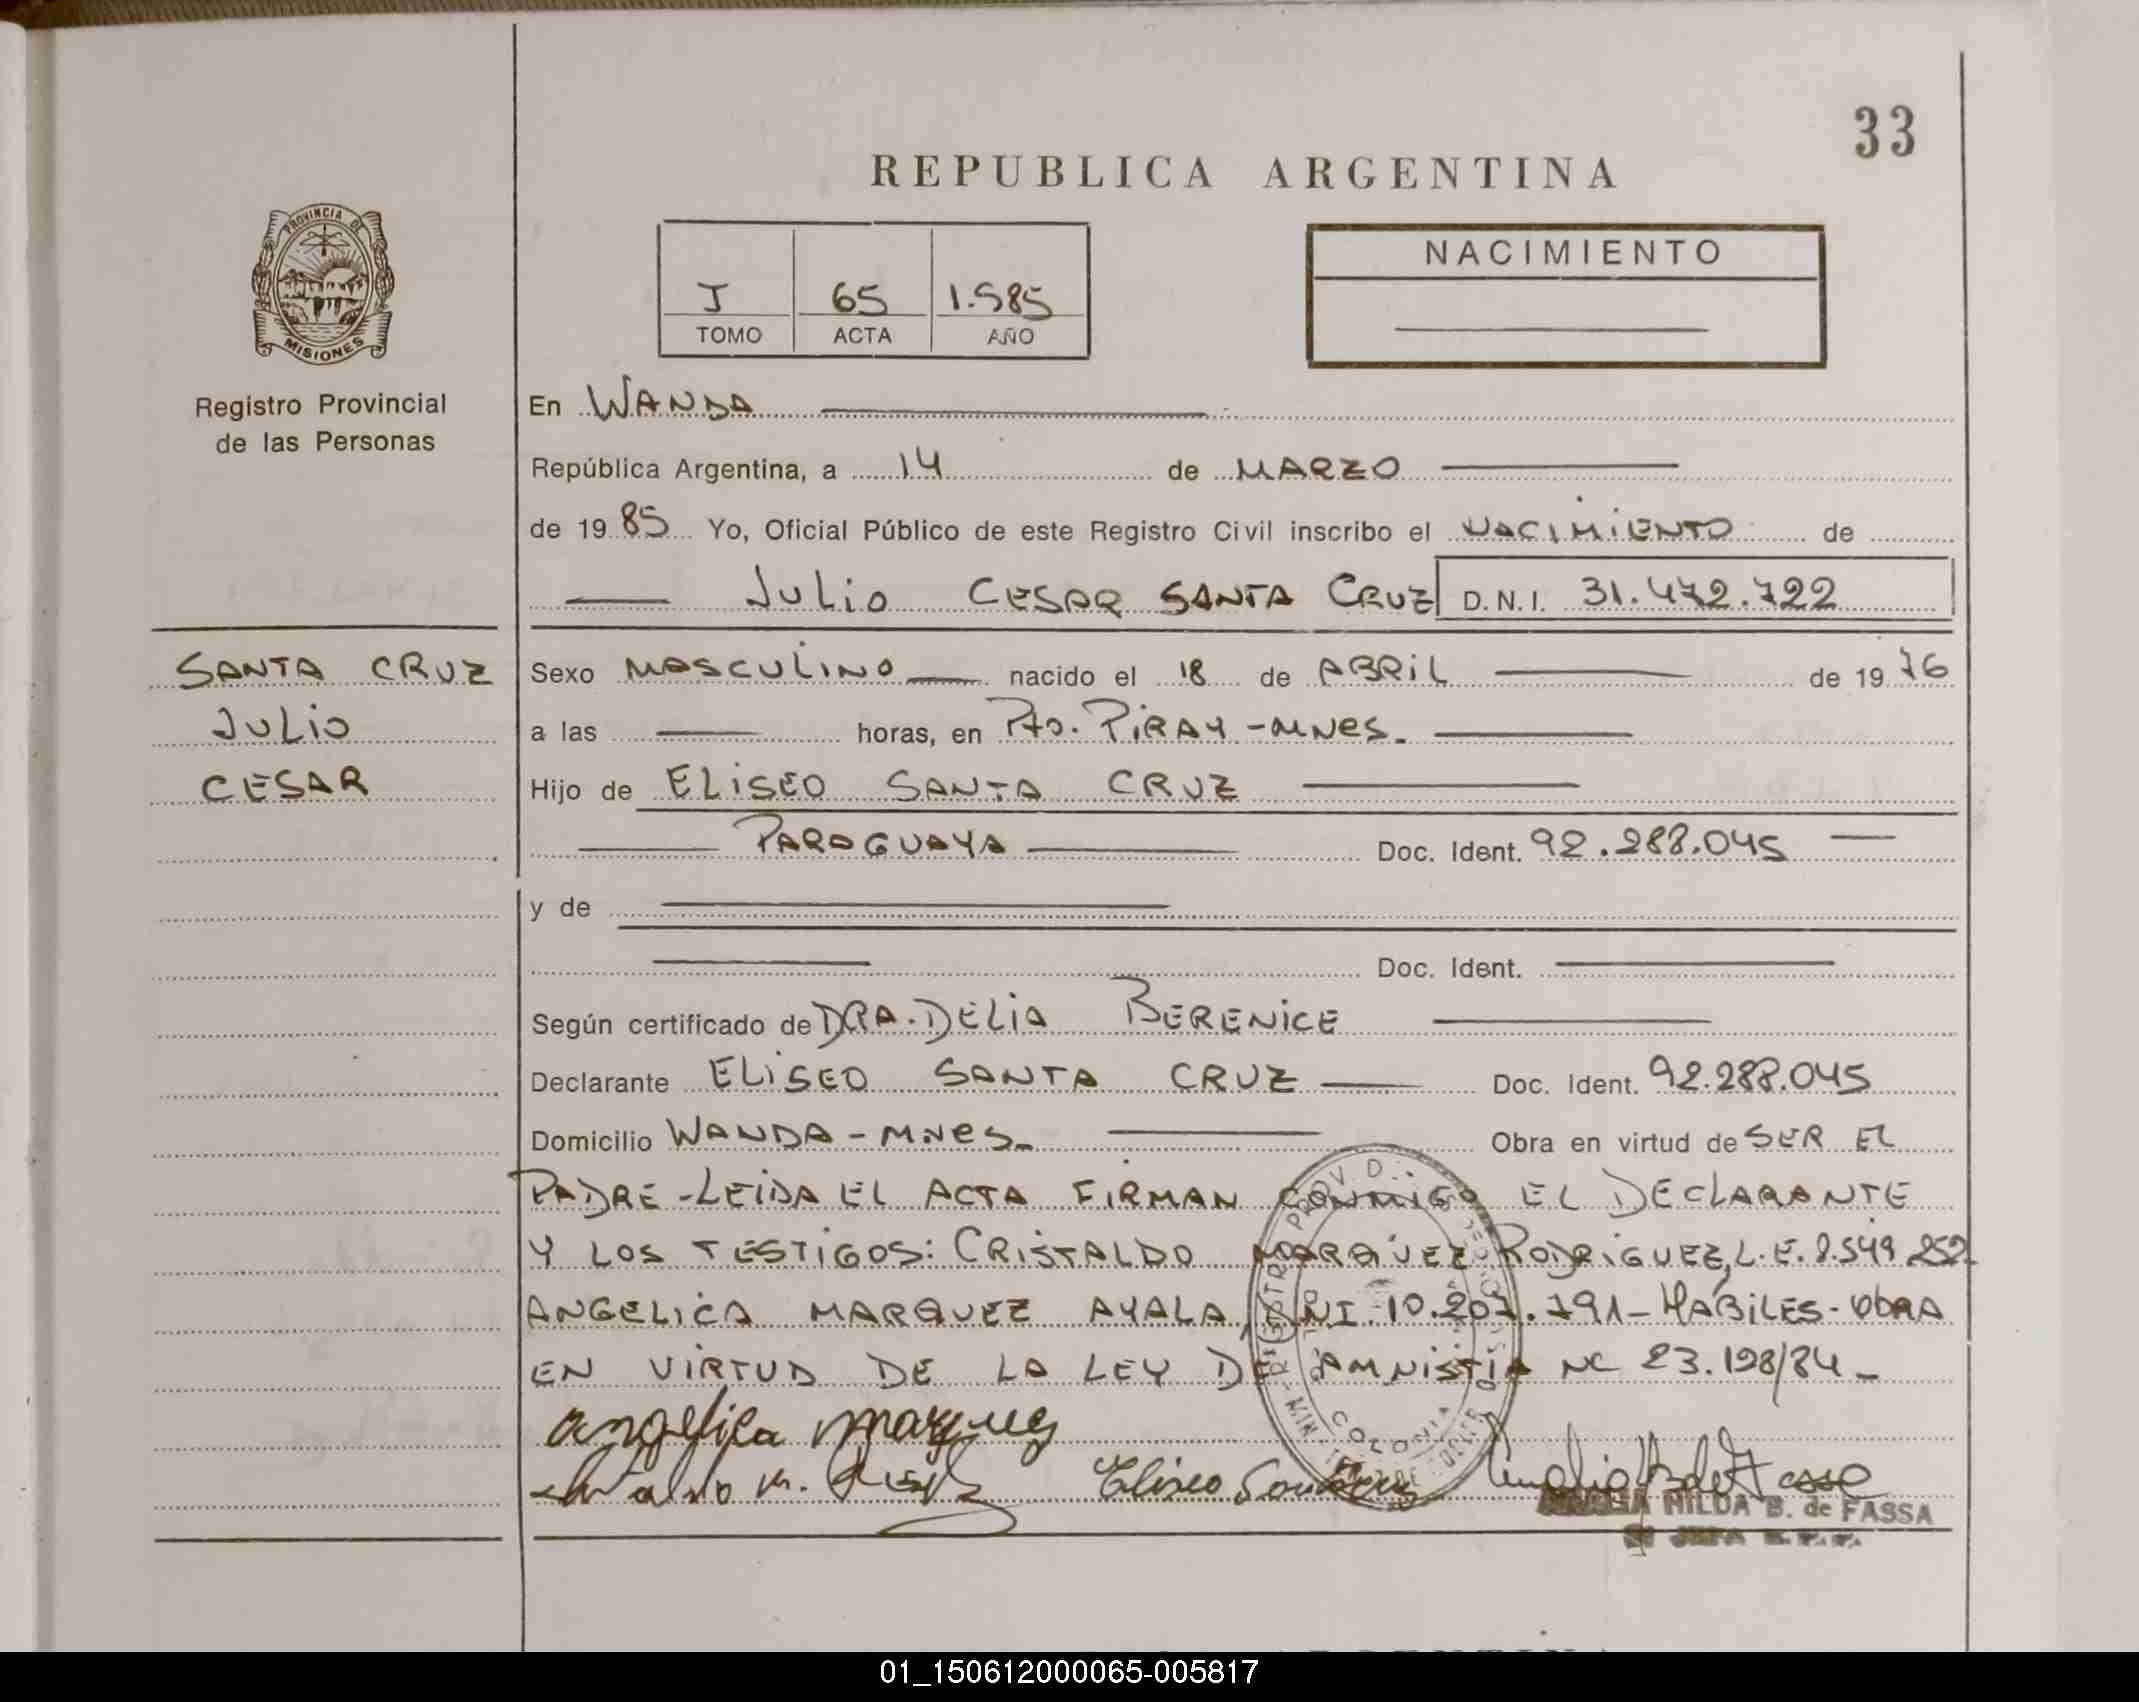 33
REPUBLICA ARGENTINA
PROVINCIA DE
MISIONES
Registro Provincial
de las Personas
I 65 1.985
TOMO ACTA AÑO
NACIMIENTO
En WANDA
República Argentina, a 14 de MARZO
de 19 85 Yo, Oficial Público de este Registro Civil inscribo el NACIMIENTO de
JULIO CESAR SANTA CRUZ D.N.I. 31.472.722
SANTA CRUZ
JULIO
CESAR
Sexo MASCULINO nacido el 18 de ABRIL de 19 76
a las horas, en Pto. PIRAY - MNES.
Hijo de ELISEO SANTA CRUZ
PARAGUAYA Doc. Ident. 92.288.045
y de
Doc. Ident.
Según certificado de DRA. DELIA BERENICE
Declarante ELISEO SANTA CRUZ Doc. Ident. 92.288.045
Domicilio WANDA - MNES. Obra en virtud de SER EL
PADRE - LEIDA EL ACTA FIRMAN CONMIGO EL DECLARANTE
Y LOS TESTIGOS: CRISTALDO MARQUEZ RODRIGUEZ, L.E. 8.549.252
ANGELICA MARQUEZ AYALA, DNI 10.207.791 - HABILES - OBRA
EN VIRTUD DE LA LEY DE AMNISTIA Nº 23.198/84 -
Angelica Marquez
Eliseo Santa Cruz
HILDA B. de FASSA
JEFA
01_150612000065-005817